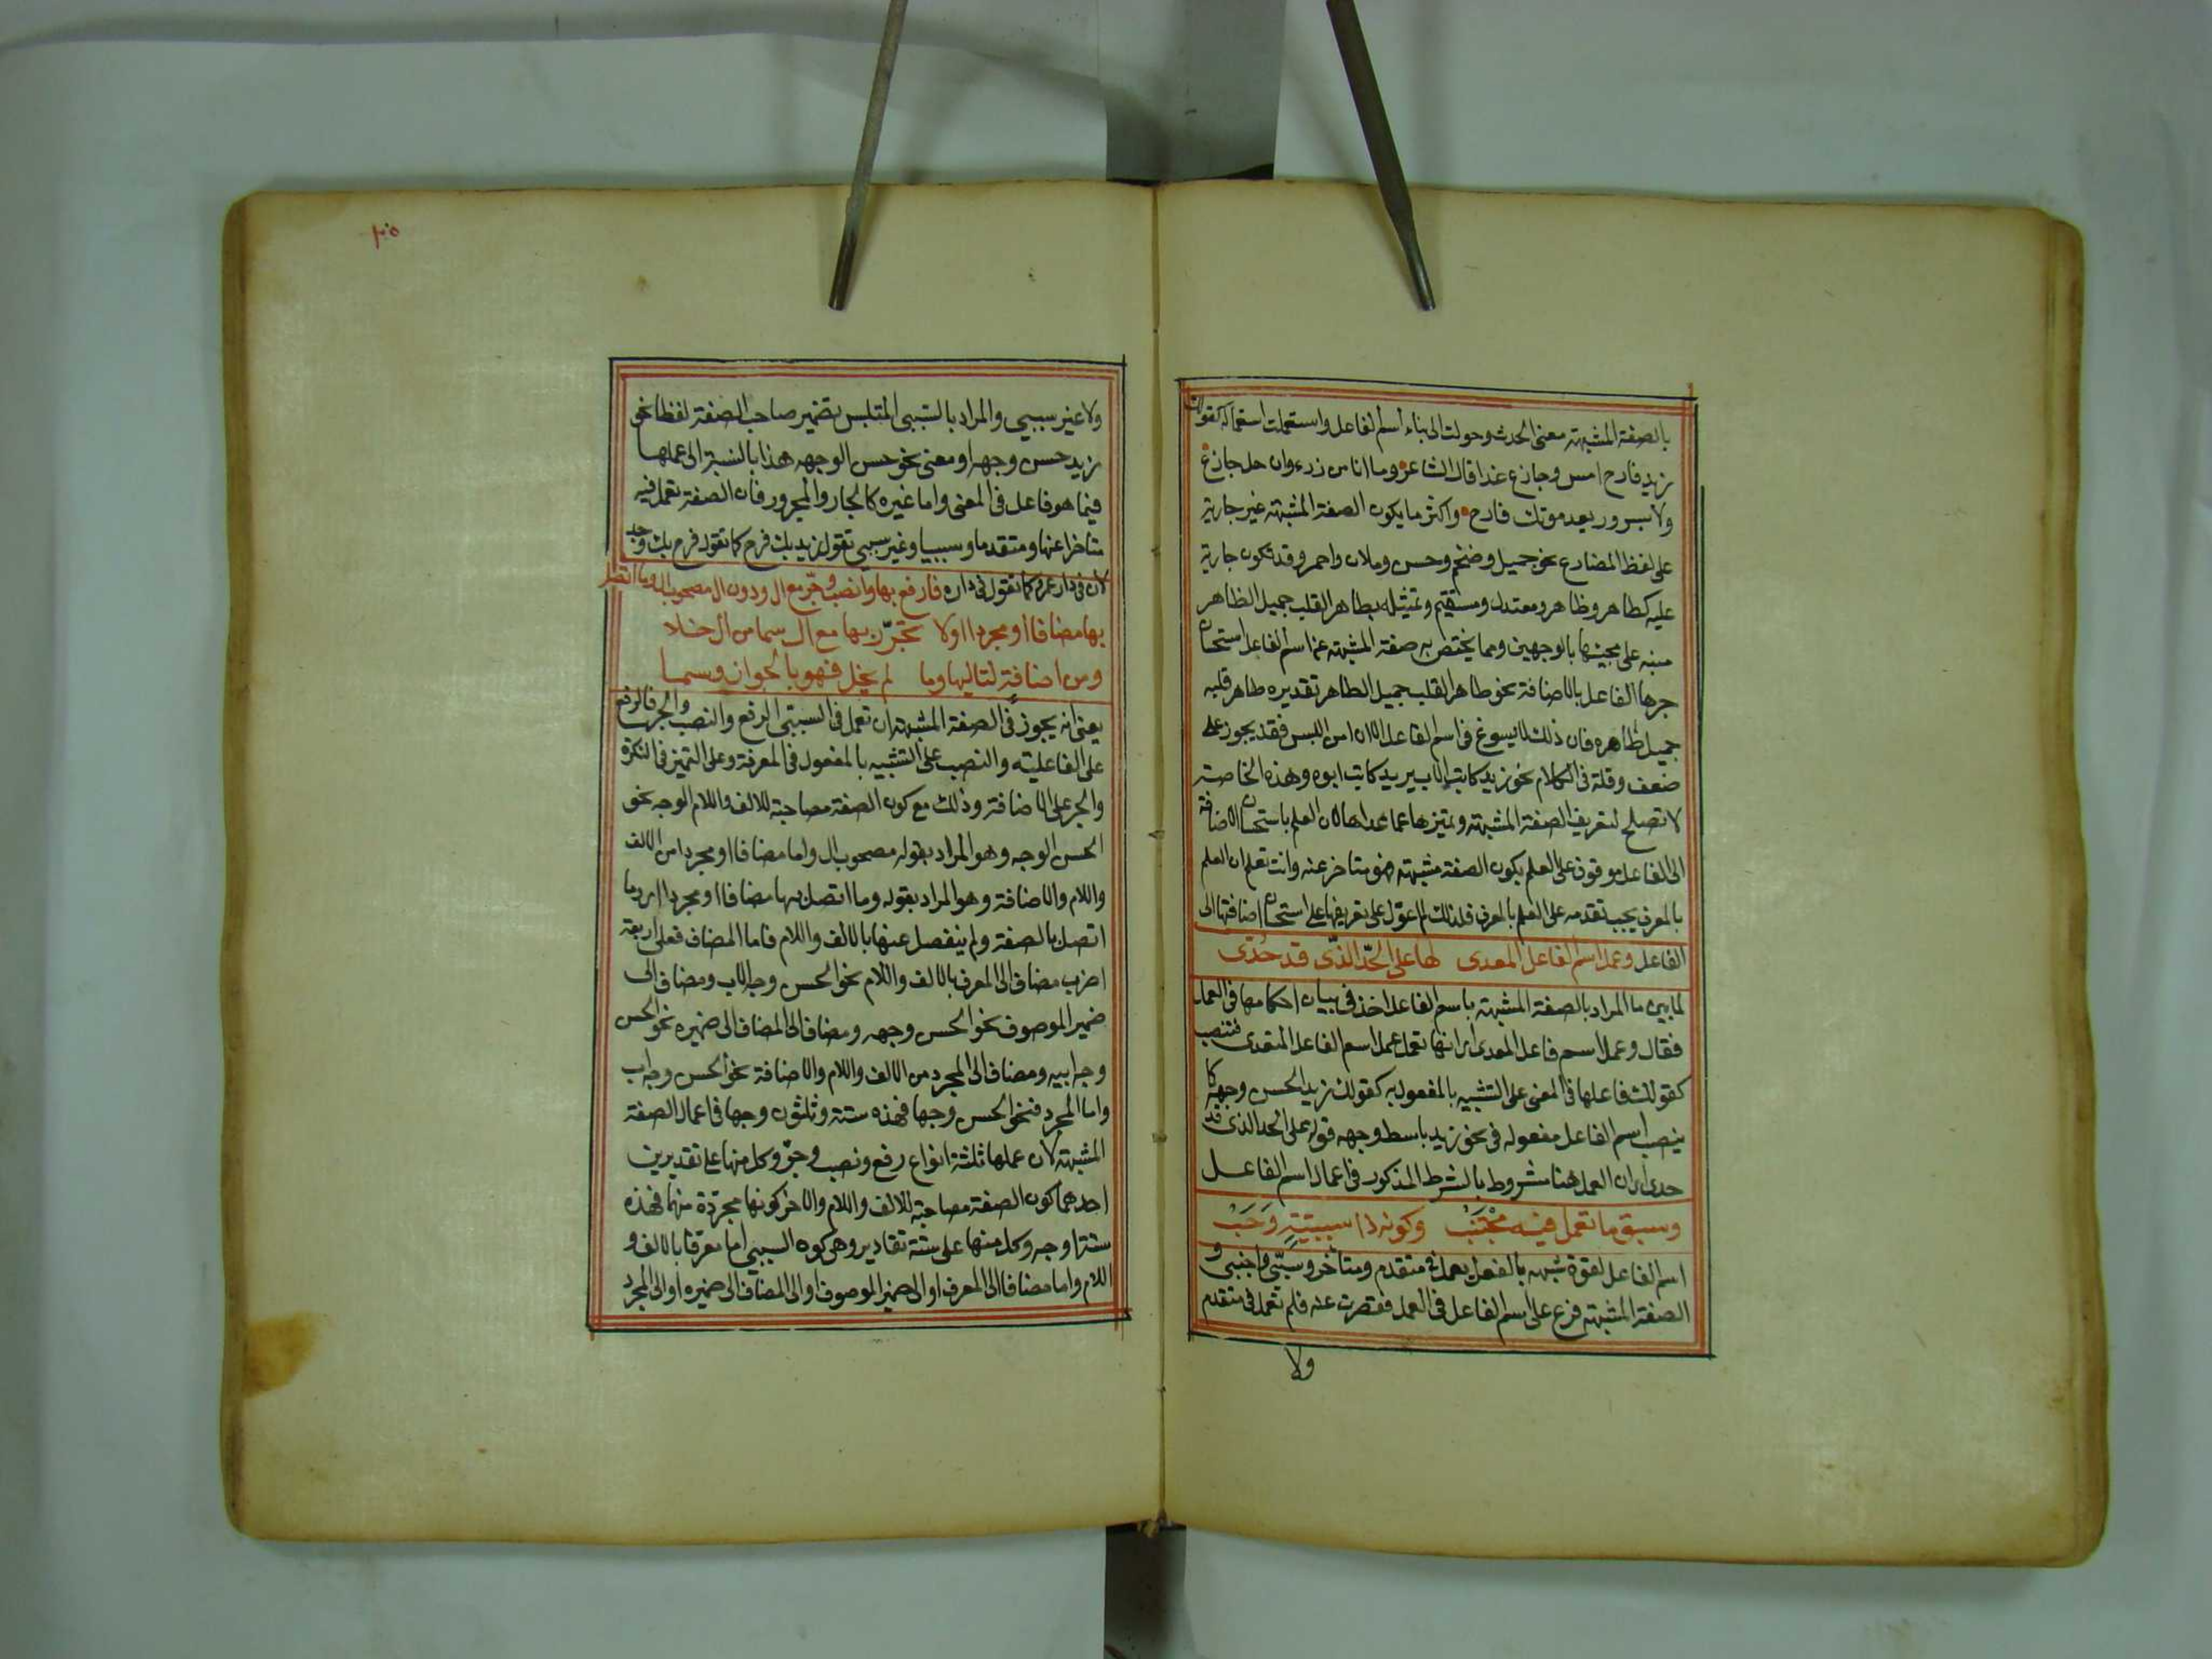 بالصفة المشبهة معنى الحدث وحولت الى بناء اسم الفاعل واستعملت استعماله كقولك
زيد فارح امس وجازع غدا قال الشاعر وما انا من رزء وان جل جازع
ولا بسرور بعد موتك فارح واكثر ما يكون الصفة المشبهة غير جارية
على لفظ المضارع نحو جميل وضخم وحسن وملان واحمر وقد تكون جارية
عليه كطاهر وظاهر ومعتدل ومستقيم وتمثيله بطاهر القلب جميل الظاهر
منبه على مجيئها بالوجهين ومما يختص به صفة المشبهة عن اسم الفاعل استحسان
جرها الفاعل بالاضافة نحو طاهر القلب جميل الظاهر تقديره طاهر قلبه
جميل ظاهره فان ذلك لا يسوغ فى اسم الفاعل الا ان امن اللبس فقد يجوز على
ضعف وقلة فى الكلام نحو زيد كاتب الاب يريد كاتب ابوه وهذه الخاصة
لا تصلح لتعريف الصفة المشبهة وتميزها عما عداها لان العلم باستحسان الاضافة
الى الفاعل موقوف على العلم بكون الصفة مشبهة فهو متاخر عنه وانت تعلم ان العلم
بالمعرف يجب تقدمه على العلم بالمعرف فلذلك لم اعول على تعريفها على استحسان اضافتها الى
الفاعل وعمل اسم الفاعل المعدى لها على الحد الذى قد حدى
لما بين ما المراد بالصفة المشبهة باسم الفاعل اخذ فى بيان احكامها فى العمل
فقال وعمل اسم فاعل المعدى اى انها تعمل عمل اسم الفاعل المتعدى فتنصب
كقولك فاعلها فى المعنى على التشبيه بالمفعول به كقولك زيد الحسن وجهه كما
ينصب اسم الفاعل مفعوله فى نحو زيد باسط وجهه قوله على الحد الذى قد
حدى اى ان العمل هنا مشروط بالشرط المذكور فى اعمال اسم الفاعل
وسبق ما تعمل فيه مجتنب وكونه ذا سببية وجب
اسم الفاعل لقوة شبهه بالفعل يعمل فى متقدم ومتاخر وسببى واجنبى و
الصفة المشبهة فرع على اسم الفاعل فى العمل فقصرت عنه فلم تعمل فى متقدم
ولا
١٠٥
ولا غير سببي والمراد بالسببى المتلبس بضمير صاحب الصفة لفظا نحو
زيد حسن وجهه او معنى نحو حسن الوجه هذا بالنسبة الى عملها
فيما هو فاعل فى المعنى واما غيره كالجار والمجرور فان الصفة تعمل فيه
متاخرا عنها ومتقدما وسببيا وغير سببي تقول زيد بك فرح كما تقول فرح بك وجد
لان فى دار عمرو كما تقول فى داره فارفع بها وانصب وجر مع ال ودون ال مصحوب ال وما اتصل
بها مضافا او مجردا اولا تجرر بها مع ال سما من ال خلا
ومن اضافة لتاليها وما لم يخل فهو بالجواز وسما
يعنى انه يجوز فى الصفة المشبهة ان تعمل فى السببى الرفع والنصب والجر فالرفع
على الفاعلية والنصب على التشبيه بالمفعول فى المعرفة وعلى التميز فى النكرة
والجر على الاضافة وذلك مع كون الصفة مصاحبة للالف واللام الوجه نحو
الحسن الوجه وهو المراد بقوله مصحوب ال واما مضافا او مجردا من الالف
واللام والاضافة وهو المراد بقوله وما اتصل بها مضافا او مجردا اى وما
اتصل بالصفة ولم ينفصل عنها بالالف واللام فاما المضاف فعلى اربعة
اضرب مضاف الى المعرف بالالف واللام نحو الحسن وجه الاب ومضاف الى
ضمير الموصوف نحو الحسن وجهه ومضاف الى المضاف الى ضميره نحو الحسن
وجه ابيه ومضاف الى المجرد من الالف واللام والاضافة نحو الحسن وجه اب
واما المجرد فنحو الحسن وجها فهذه ستة وثلثون وجها فى اعمال الصفة
المشبهة لان عملها ثلثة انواع رفع ونصب وجر وكل منها على تقديرين
احدهما كون الصفة مصاحبة للالف واللام والاخر كونها مجردة منهما فهذه
ستة اوجه وكل منها على ستة تقادير وهى كون السببى اما معرفا بالالف و
اللام واما مضافا الى المعرف او الى ضمير الموصوف او الى المضاف الى ضميره او الى المجرد